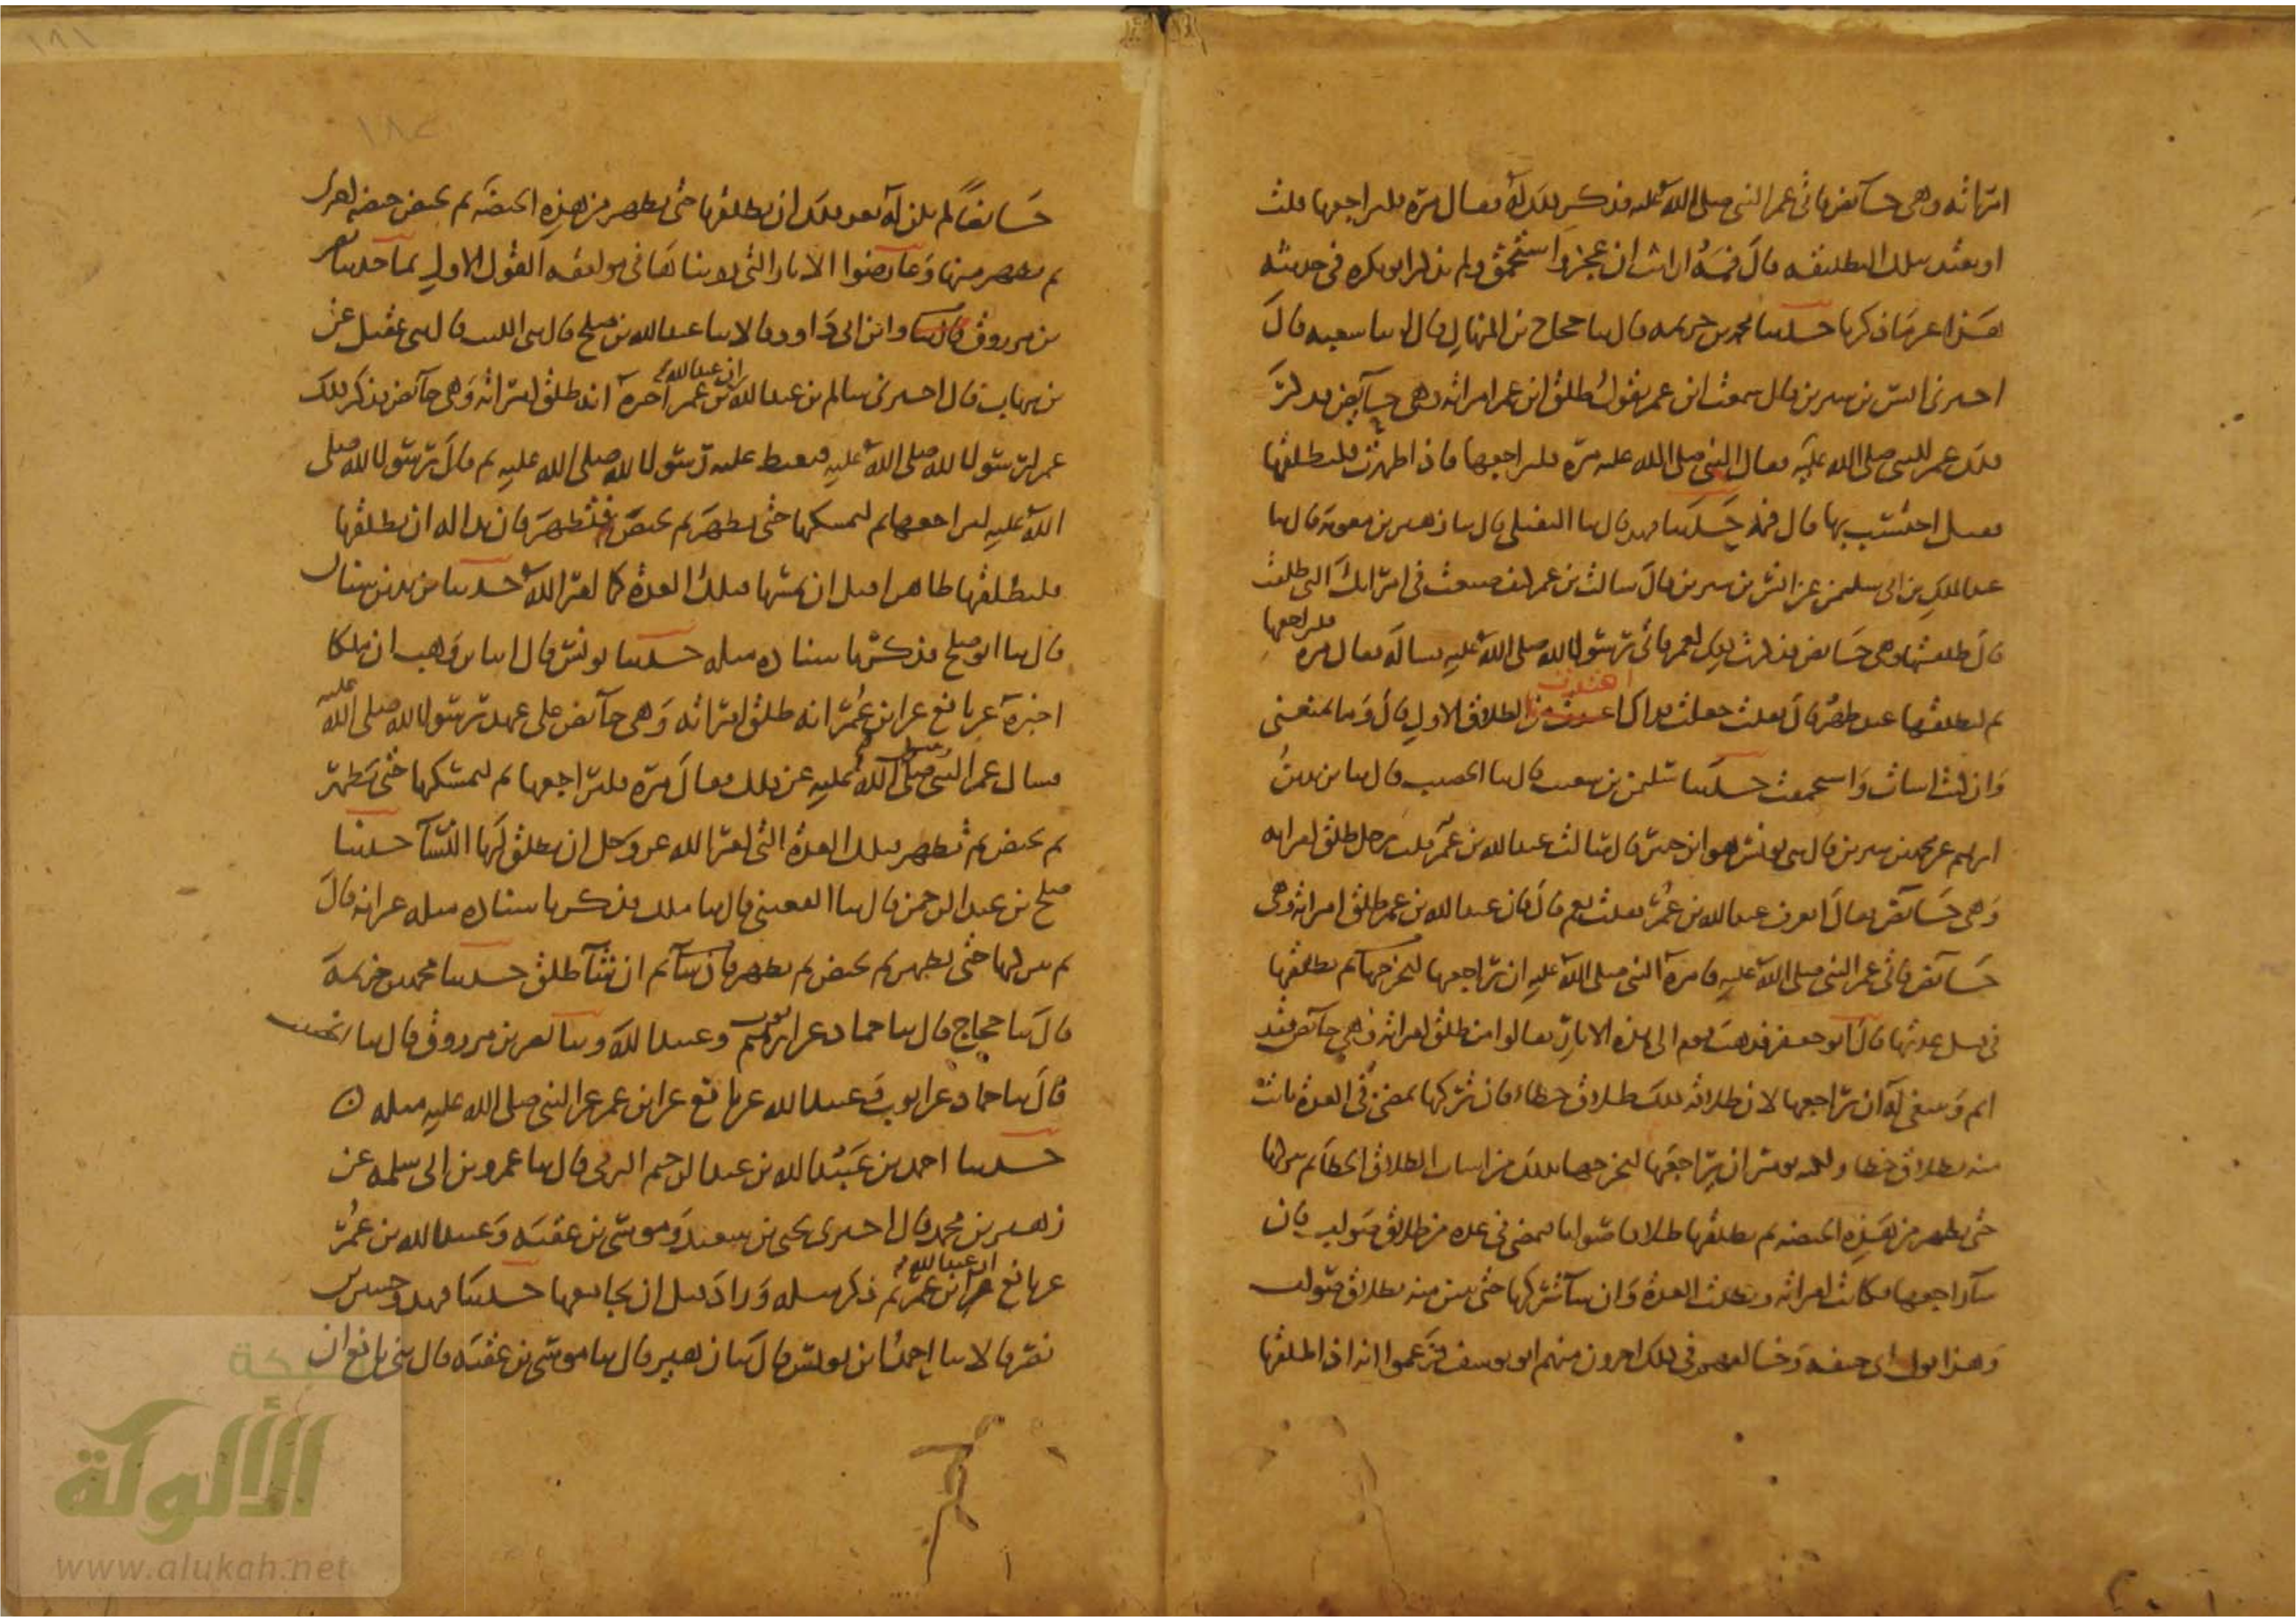 امراته وهي حائض فاتى عمر النبي صلى الله عليه فذكر ذلك له فقال مره فليراجعها قلت
او يعتد بتلك التطليقة قال فمه ارايت ان عجز واستحمق ولم يذكر ابو بكرة في حديثه
هذا غير ما ذكرنا حدثنا محمد بن خزيمة قال ثنا حجاج بن المنهال قال ثنا شعبة قال
اخبرني انس بن سيرين قال سمعت ابن عمر يقول طلق ابن عمر امراته وهي حائض فذكر
ذلك عمر للنبي صلى الله عليه فقال النبي صلى الله عليه مره فليراجعها فاذا طهرت فليطلقها
فقيل احتسب بها قال فمه حدثنا فهد قال ثنا النفيلي قال ثنا زهير بن معوية قال ثنا
عبد الملك بن ابي سليمن عن انس بن سيرين قال سالت بن عمر كيف صنعت في امراتك التي طلقت
قال طلقتها وهي حائض فذكرت ذلك لعمر فاتى رسول الله صلى الله عليه فساله فقال مره فليراجعها
ثم ليطلقها عند طهر قال فقلت جعلت فداك اعتددت من الطلاق الاول قال وما يمنعني
وان كنت اسات واستحمقت حدثنا سليمن بن شعيب قال ثنا الخصيب قال ثنا يزيد بن
ابرهيم عن محمد بن سيرين قال ثني يونس هو ابن جبير قال سالت عبد الله بن عمر قلت رجل طلق امراته
وهي حائض فقال اتعرف عبد الله بن عمر فقلت نعم قال فان عبد الله بن عمر طلق امراته وهي
حائض فاتى عمر النبي صلى الله عليه فامره النبي صلى الله عليه ان يراجعها ثم يطلقها
في قبل عدتها قال ابو جعفر فذهب قوم الى هذه الاثار فقالوا من طلق امراته وهي حائض فقد
اثم وينبغي له ان يراجعها لان طلاقه ذلك طلاق خطاء فان تركها تمضي في العدة بانت
منه بطلاق خطا ولكنه يومر ان يراجعها ليخرجها بذلك من اسباب الطلاق الخطا ثم يتركها
حتى تطهر من هذه الحيضة ثم يطلقها طلاقا صوابا فتمضي في عدة من طلاق صواب فان
شا راجعها فكانت امراته وبطلت العدة وان شا تركها حتى تبين منه بطلاق صواب
وهذا قول ابي حنيفة وخالفهم في ذلك اخرون منهم ابو يوسف فزعموا انه اذا طلقها
حائضا لم يكن له بعد ذلك ان يطلقها حتى تطهر من هذه الحيضة ثم تحيض حيضة اخرى
ثم تطهر منها وعارضوا الاثار التي روينا في موافقة القول الاول بما حدثنا نصر
بن مرزوق وابن ابي داود قالا ثنا عبد الله بن صلح قال ثني الليث قال ثني عقيل عن
بن شهاب قال اخبرني سالم بن عبد الله ان عبد الله بن عمر اخبره انه طلق امراته وهي حائض فذكر ذلك
عمر لرسول الله صلى الله عليه فتغيظ عليه رسول الله صلى الله عليه ثم قال رسول الله صلى
الله عليه ليراجعها ثم ليمسكها حتى تطهر ثم تحيض فتطهر فان بدا له ان يطلقها
فليطلقها طاهرا قبل ان يمسها فتلك العدة كما امر الله حدثنا يزيد بن سنان
قال ثنا ابو صلح فذكر باسناده مثله حدثنا يونس قال انا بن وهب ان ملكا
اخبره عن نافع عن ابن عمر انه طلق امراته وهي حائض على عهد رسول الله صلى الله عليه
فسال عمر النبي صلى الله عليه وسلم عن ذلك فقال مره فليراجعها ثم ليمسكها حتى تطهر
ثم تحيض ثم تطهر فتلك العدة التي امر الله عز وجل ان يطلق لها النسآ حدثنا
صلح بن عبد الرحمن قال ثنا القعنبي قال ثنا ملك فذكر باسناده مثله غير انه قال
ثم يتركها حتى تطهر ثم تحيض ثم تطهر ثم ان شآ طلق حدثنا محمد بن خزيمة
قال ثنا حجاج قال ثنا حماد عن ايوب وعبيد الله وثنا نصر بن مرزوق قال ثنا الخصيب
قال ثنا حماد عن ايوب وعبيد الله عن نافع عن ابن عمر عن النبي صلى الله عليه مثله ٥
حدثنا احمد بن عبد الله بن عبد الرحيم البرقي قال ثنا عمرو بن ابي سلمة عن
زهير بن محمد قال اخبرني يحيى بن سعيد وموسى بن عقبة وعبيد الله بن عمر
عن نافع ان عبد الله بن عمر ثم ذكر مثله وزاد قبل ان يجامعها حدثنا فهد وحسين بن
نصر قالا ثنا احمد بن يونس قال ثنا زهير قال ثنا موسى بن عقبة قال ثني نافع ان
١٨٢
١٩١
الألوكة
www.alukah.net